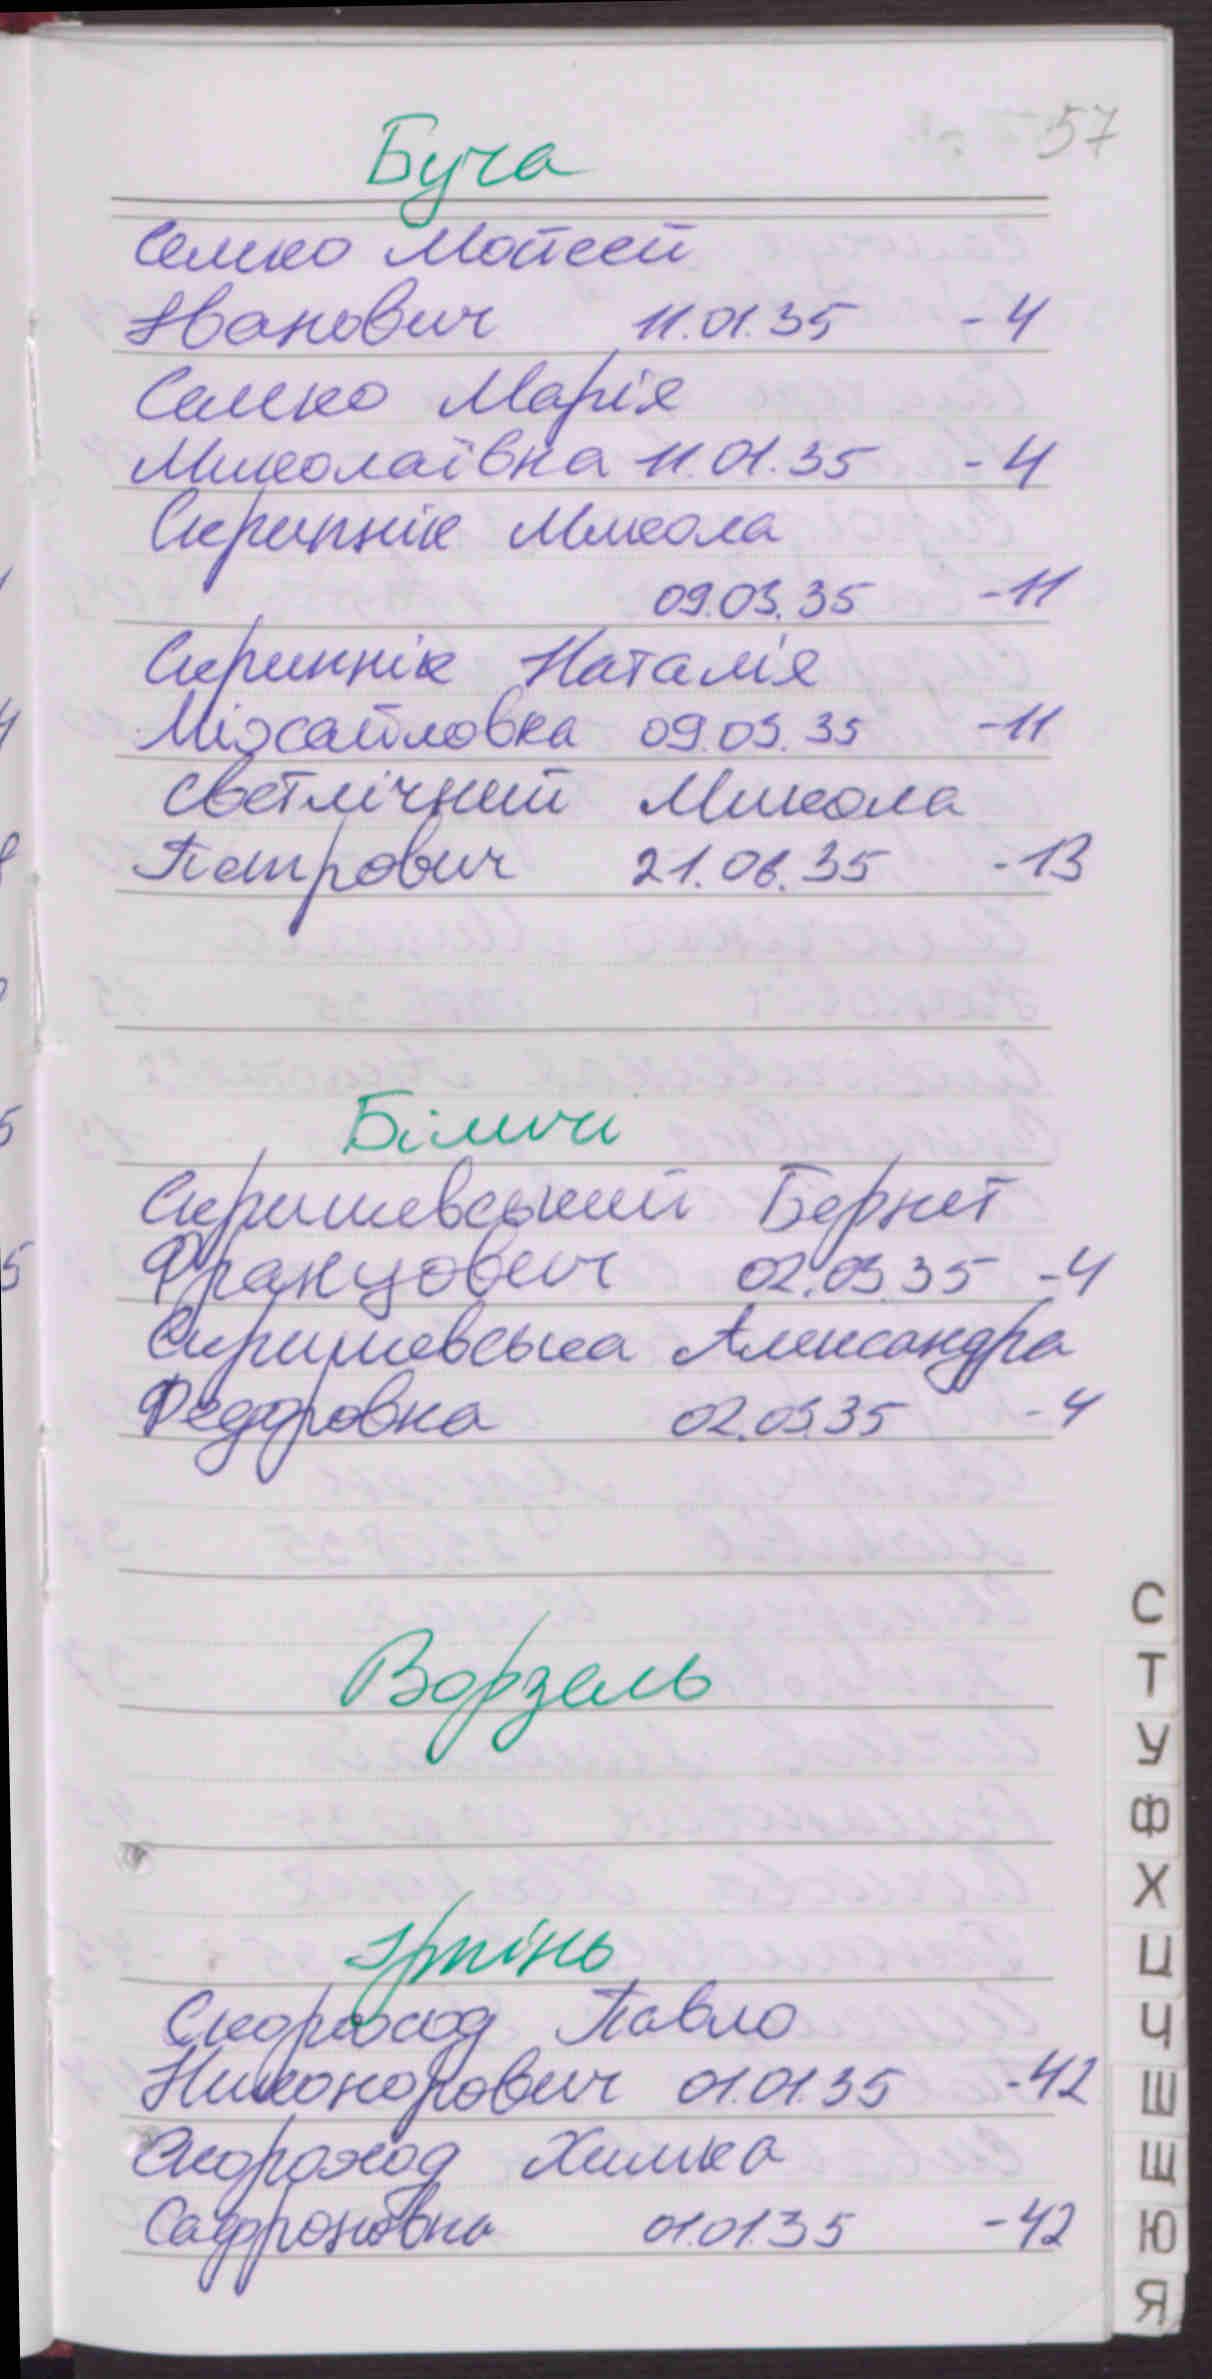 57
Буча
Семко Мойсей
Іванович 11.01.35 -4
Семко Марія
Миколаївна 11.01.35 -4
Скрипнік Микола
09.03.35 -11
Скрипнік Наталія
Міхайловна 09.03.35 -11
Светлічний Микола
Петрович 21.06.35 -13
Біличі
Скришевський Бернет
Францович 02.03.35 -4
Скришевська Александра
Федоровна 02.03.35 -4
Ворзель
Ірпінь
Скороход Павло
Никонорович 01.01.35 -42
Скороход Химка
Сафроновна 01.01.35 -42
С
Т
У
Ф
Х
Ц
Ч
Ш
Щ
Ю
Я